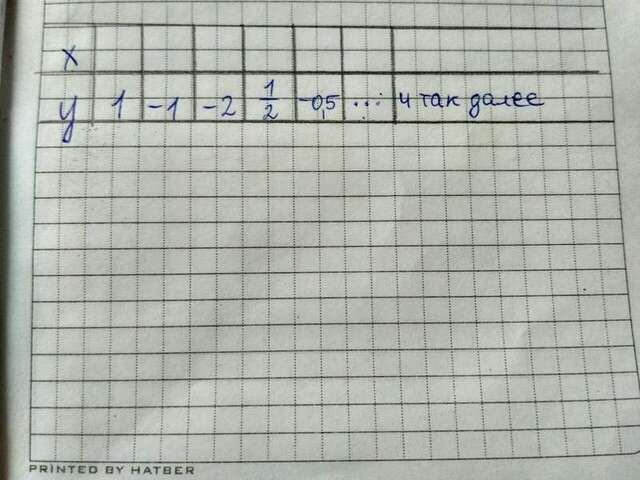 x
y 1 -1 -2 1/2 -0,5 ... и так далее
PRINTED BY HATBER